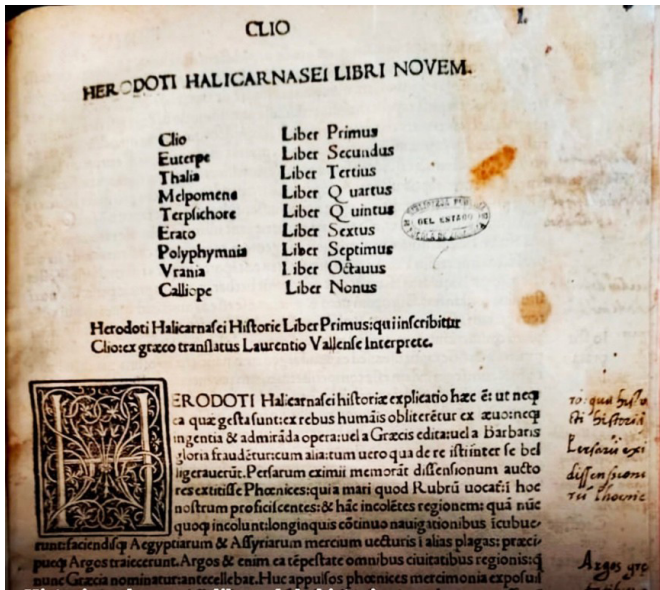 CLIO
1.
HERODOTI HALICARNASEI LIBRI NOVEM.
Clio Liber Primus
Euterpe Liber Secundus
Thalia Liber Tertius
Melpomene Liber Quartus
Terpsichore Liber Quintus
Erato Liber Sextus
Polyphymnia Liber Septimus
Vrania Liber Octauus
Calliope Liber Nonus
DEL ESTADO
Herodoti Halicarnasei Historie Liber Primus:qui inscribitur
Clio:ex græco translatus Laurentio Vallense Interprete.
HERODOTI Halicarnasei historiæ explicatio hæc ē: ut neqȝ
ea quæ gesta sunt:ex rebus humāis obliterētur ex æuo:neqȝ
ingentia & admirāda opera:uel a Græcis edita:uel a Barbaris
gloria fraudētur:cum alia:tum uero qua de re isti inter se bel
ligerauerūt. Persarum eximii memorāt dissensionum aucto
res extitisse Phœnices:qui a mari quod Rubrū uocat hoc
nostrum proficiscentes:& hāc incolētes regionem: quā nūc
quoqȝ incolunt:longinquis cōtinuo nauigationibus īcubue
runt:faciendisqȝ Aegyptiarum & Assyriarum mercium uecturis ī alias plagas: præci
pueqȝ Argos traiecerunt. Argos & enim ea tēpestate omnibus ciuitatibus regionis:q
nunc Græcia nominatur:antecellebat. Huc appulsos phœnices mercimonia exposuis
Argos